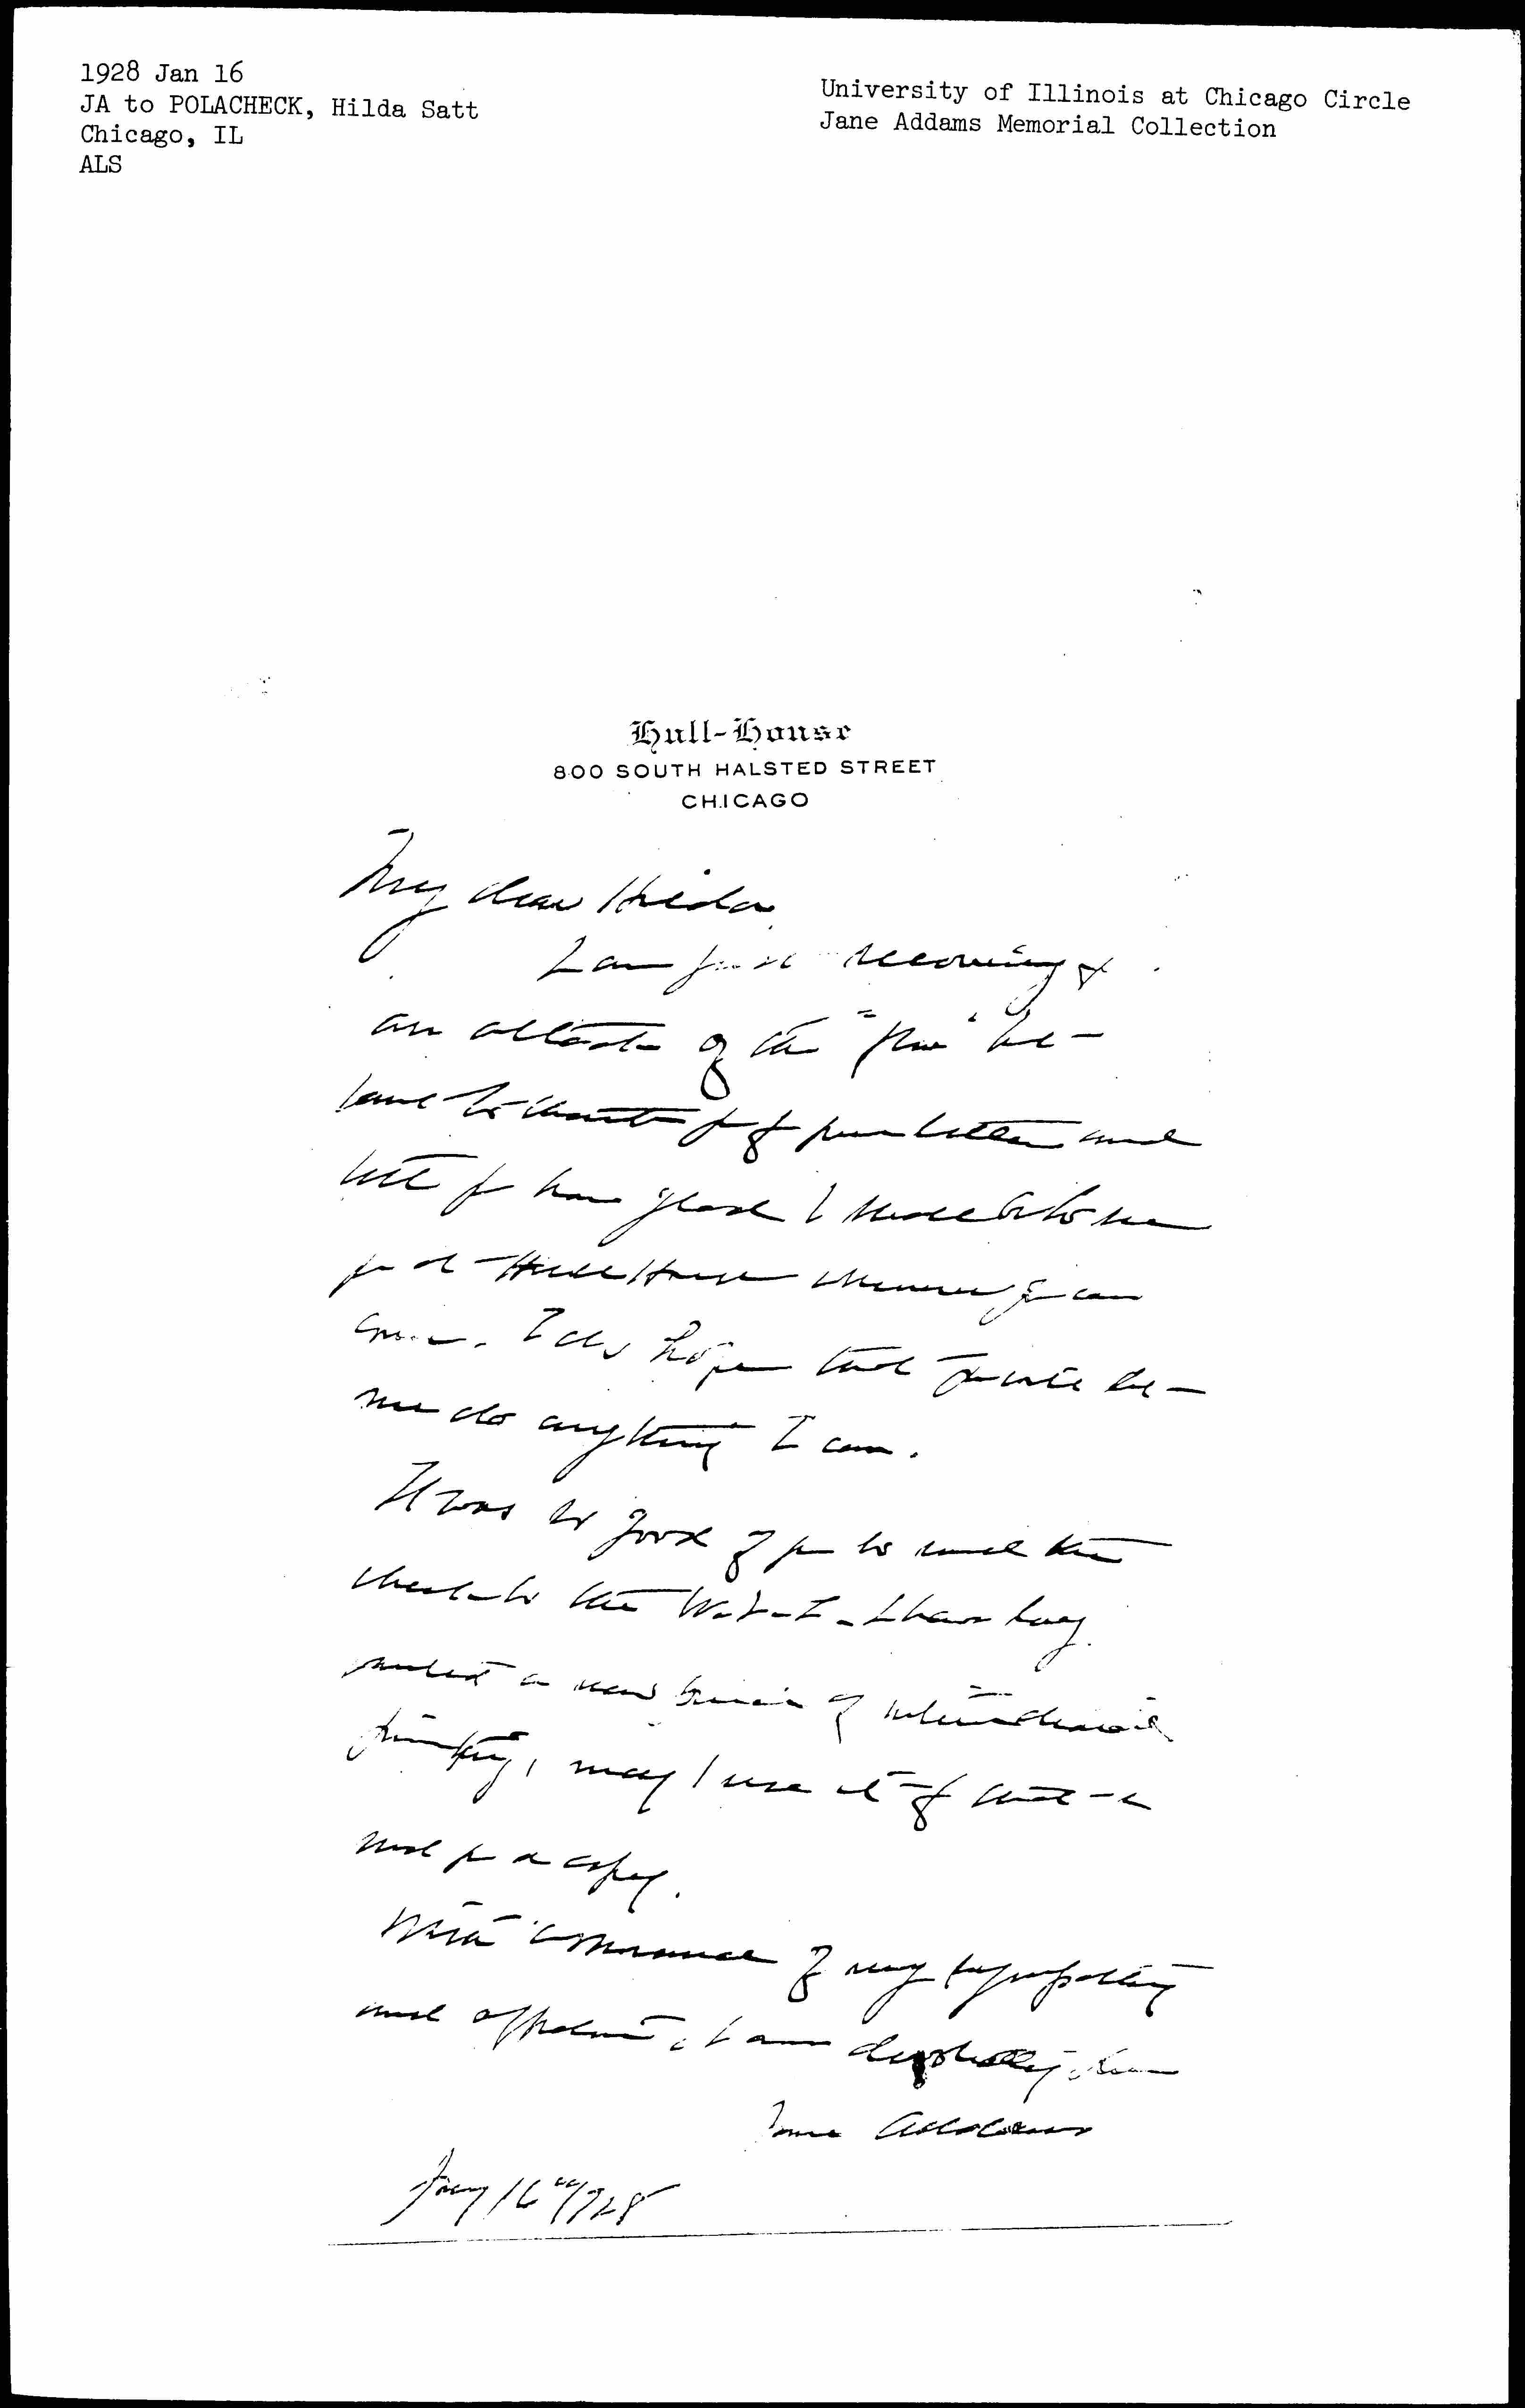 1928 Jan 16
JA to POLACHECK, Hilda Satt
Chicago, IL
ALS
University of Illinois at Chicago Circle
Jane Addams Memorial Collection
Hull-House
800 SOUTH HALSTED STREET
CHICAGO
My dear Hilda
I am just recovering of
an attack of the "flu" but
want to thank you for your letter and
tell you how glad I should be to see
you at Hull House whenever you can
come. I do hope that you will let
me do anything I can.
It was so good of you to send the
check to the W.I.L. I have long
wanted a new of international
may I use it for that
send you a copy.
With assurance of my sympathy
and affection, I am
Jane Addams
Jany 16" 1928